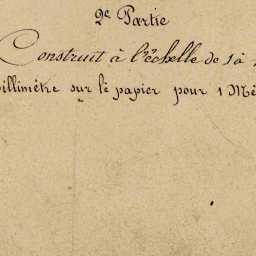 2e Partie
Construit à l'échelle de 1 à
illimètre sur le papier pour 1 Mè